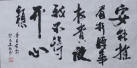 安能摧
眉折腰事
权贵使
我不得
开心
颜